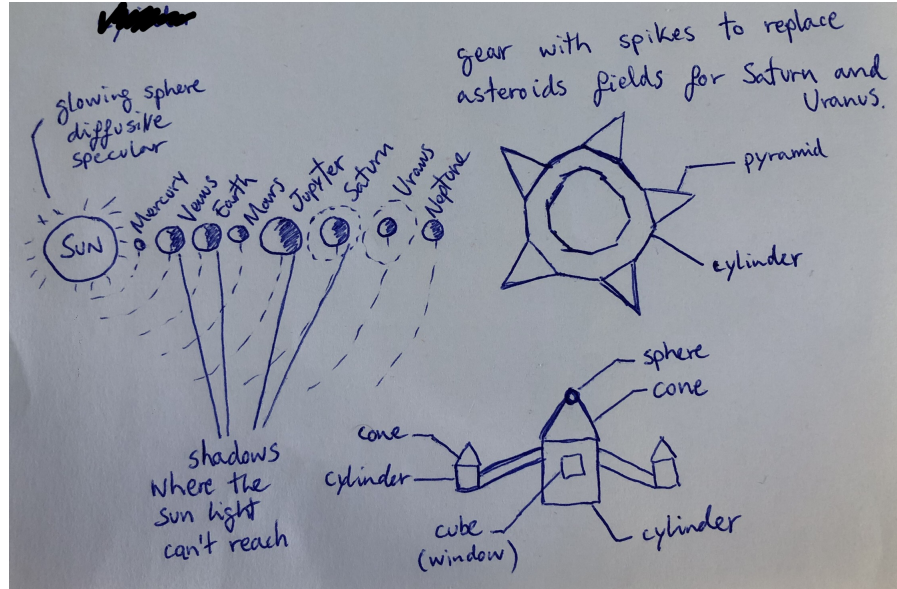 glowing sphere
diffusive
specular
SUN
Mercury
Venus
Earth
Mars
Jupyter
Saturn
Uranus
Neptune
shadows
where the
sun light
can't reach
gear with spikes to replace
asteroids fields for Saturn and
Uranus.
pyramid
cylinder
sphere
cone
cone
cylinder
cube
(window)
cylinder